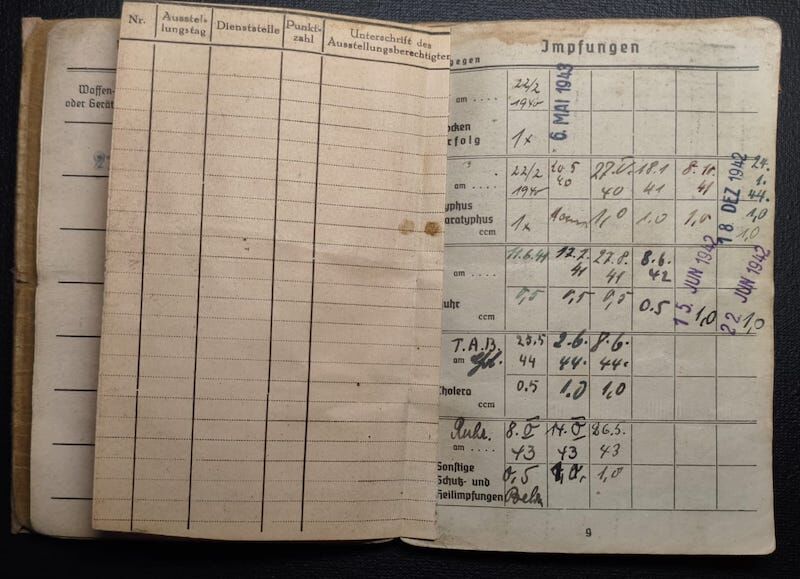 Waffen-
oder Gerät
Nr.
Ausstel-
lungstag
Dienststelle
Punkt-
zahl
Unterschrift des
Ausstellungsberechtigter
Impfungen
gegen
am . . . .
22/2
1940
6. MAI 1943
ocken
rfolg
1x
am . . . .
22/2
1940
20.5
40
27.V.
40
18.1
41
8.11.
41
18 DEZ 1942
24.
1.
44.
yphus
aratyphus
ccm
1x
1,0
1.0
1,0
1,0
1,0
am . . . .
11.6.41
17.7.
41
27.8.
41
8.6.
42
15. JUN 1942
22 JUN 1942
uhr
ccm
0,5
0,5
0,5
0.5
1,0
1,0
T.A.B.
am
25.5
44
2.6.
44.
8.6.
44.
holera
ccm
0.5
1.0
1,0
Ruhr.
am . . . .
8. V
43
14. V
43
26.5.
43
Sonstige
Schutz- und
Heilimpfungen
0,5
1,0.
1,0
9